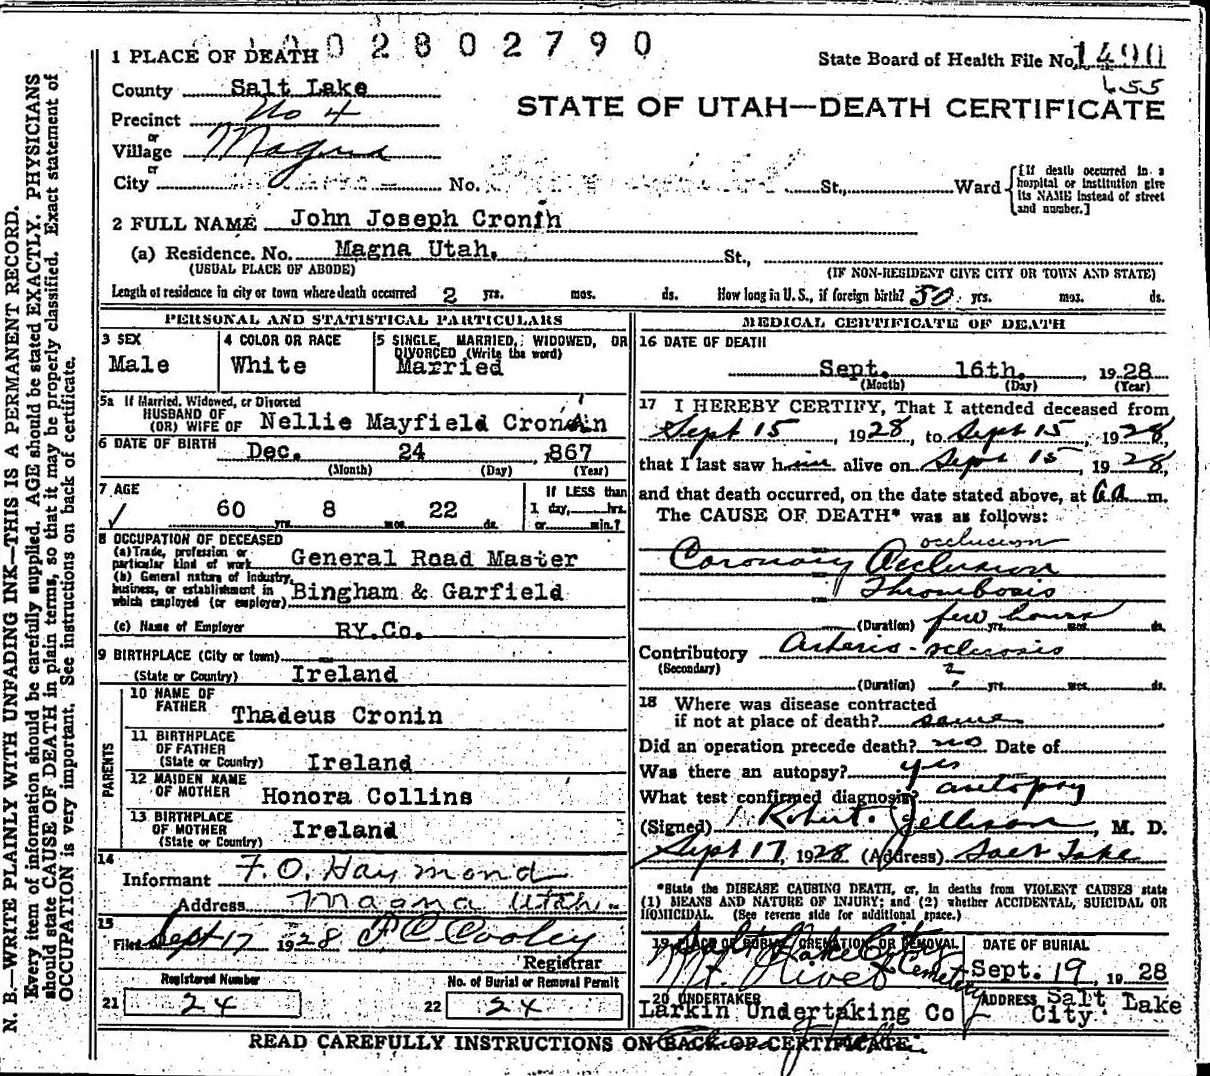 002802790
1 PLACE OF DEATH
State Board of Health File No.
County Salt Lake
655
Precinct No 4
STATE OF UTAH—DEATH CERTIFICATE
or
Village Magna
or
City No. St., Ward
[If death occurred in a hospital or institution give its NAME instead of street and number.]
2 FULL NAME John Joseph Cronin
(a) Residence. No. Magna Utah. St.,
(USUAL PLACE OF ABODE) (IF NON-RESIDENT GIVE CITY OR TOWN AND STATE)
Length of residence in city or town where death occurred 2 yrs. mos. ds. How long in U. S., if foreign birth? 50 yrs. mos. ds.
PERSONAL AND STATISTICAL PARTICULARS
3 SEX
Male
4 COLOR OR RACE
White
5 SINGLE, MARRIED, WIDOWED, OR
DIVORCED (Write the word)
Married
5a If Married, Widowed, or Divorced
HUSBAND OF
(OR) WIFE OF Nellie Mayfield Cronin
6 DATE OF BIRTH Dec. 24, 1867
(Month) (Day) (Year)
7 AGE
60 yrs. 8 mos. 22 ds.
If LESS than
1 day, hrs.
or min.?
8 OCCUPATION OF DECEASED
(a) Trade, profession or
particular kind of work General Road Master
(b) General nature of industry,
business, or establishment in
which employed (or employer) Bingham & Garfield
(c) Name of Employer RY.Co.
9 BIRTHPLACE (City or town)
(State or Country) Ireland
PARENTS
10 NAME OF
FATHER Thadeus Cronin
11 BIRTHPLACE
OF FATHER
(State or Country) Ireland
12 MAIDEN NAME
OF MOTHER Honora Collins
13 BIRTHPLACE
OF MOTHER
(State or Country) Ireland
14
Informant F. O. Haymond
Address Magna Utah.
15
Filed Sept 17 1928
Registrar
Registered Number
21 24
No. of Burial or Removal Permit
22 24
MEDICAL CERTIFICATE OF DEATH
16 DATE OF DEATH
Sept. 16th, 1928
(Month) (Day) (Year)
17 I HEREBY CERTIFY, That I attended deceased from
Sept 15, 1928, to Sept 15, 1928,
that I last saw him alive on Sept 15, 1928,
and that death occurred, on the date stated above, at 6 a m.
The CAUSE OF DEATH* was as follows:
occlusion
Coronary Occlusion
Thrombosis
(Duration) few hours yrs. mos. ds.
Contributory Arterio-sclerosis
(Secondary)
(Duration) ? yrs. mos. ds.
18 Where was disease contracted
if not at place of death? same
Did an operation precede death? no Date of
Was there an autopsy? yes
What test confirmed diagnosis? autopsy
(Signed) Robert Jellison, M. D.
Sept 17, 1928 (Address) Salt Lake
*State the DISEASE CAUSING DEATH, or, in deaths from VIOLENT CAUSES state
(1) MEANS AND NATURE OF INJURY; and (2) whether ACCIDENTAL, SUICIDAL OR
HOMICIDAL. (See reverse side for additional space.)
19 PLACE OF BURIAL, CREMATION, OR REMOVAL
Salt Lake City
Mt. Olivet Cemetery
DATE OF BURIAL
Sept. 19, 1928
20 UNDERTAKER
Larkin Undertaking Co
ADDRESS Salt Lake
City
READ CAREFULLY INSTRUCTIONS ON BACK OF CERTIFICATE
N. B.—WRITE PLAINLY WITH UNFADING INK—THIS IS A PERMANENT RECORD.
Every item of information should be carefully supplied. AGE should be stated EXACTLY. PHYSICIANS
should state CAUSE OF DEATH in plain terms, so that it may be properly classified. Exact statement of
OCCUPATION is very important. See instructions on back of certificate.